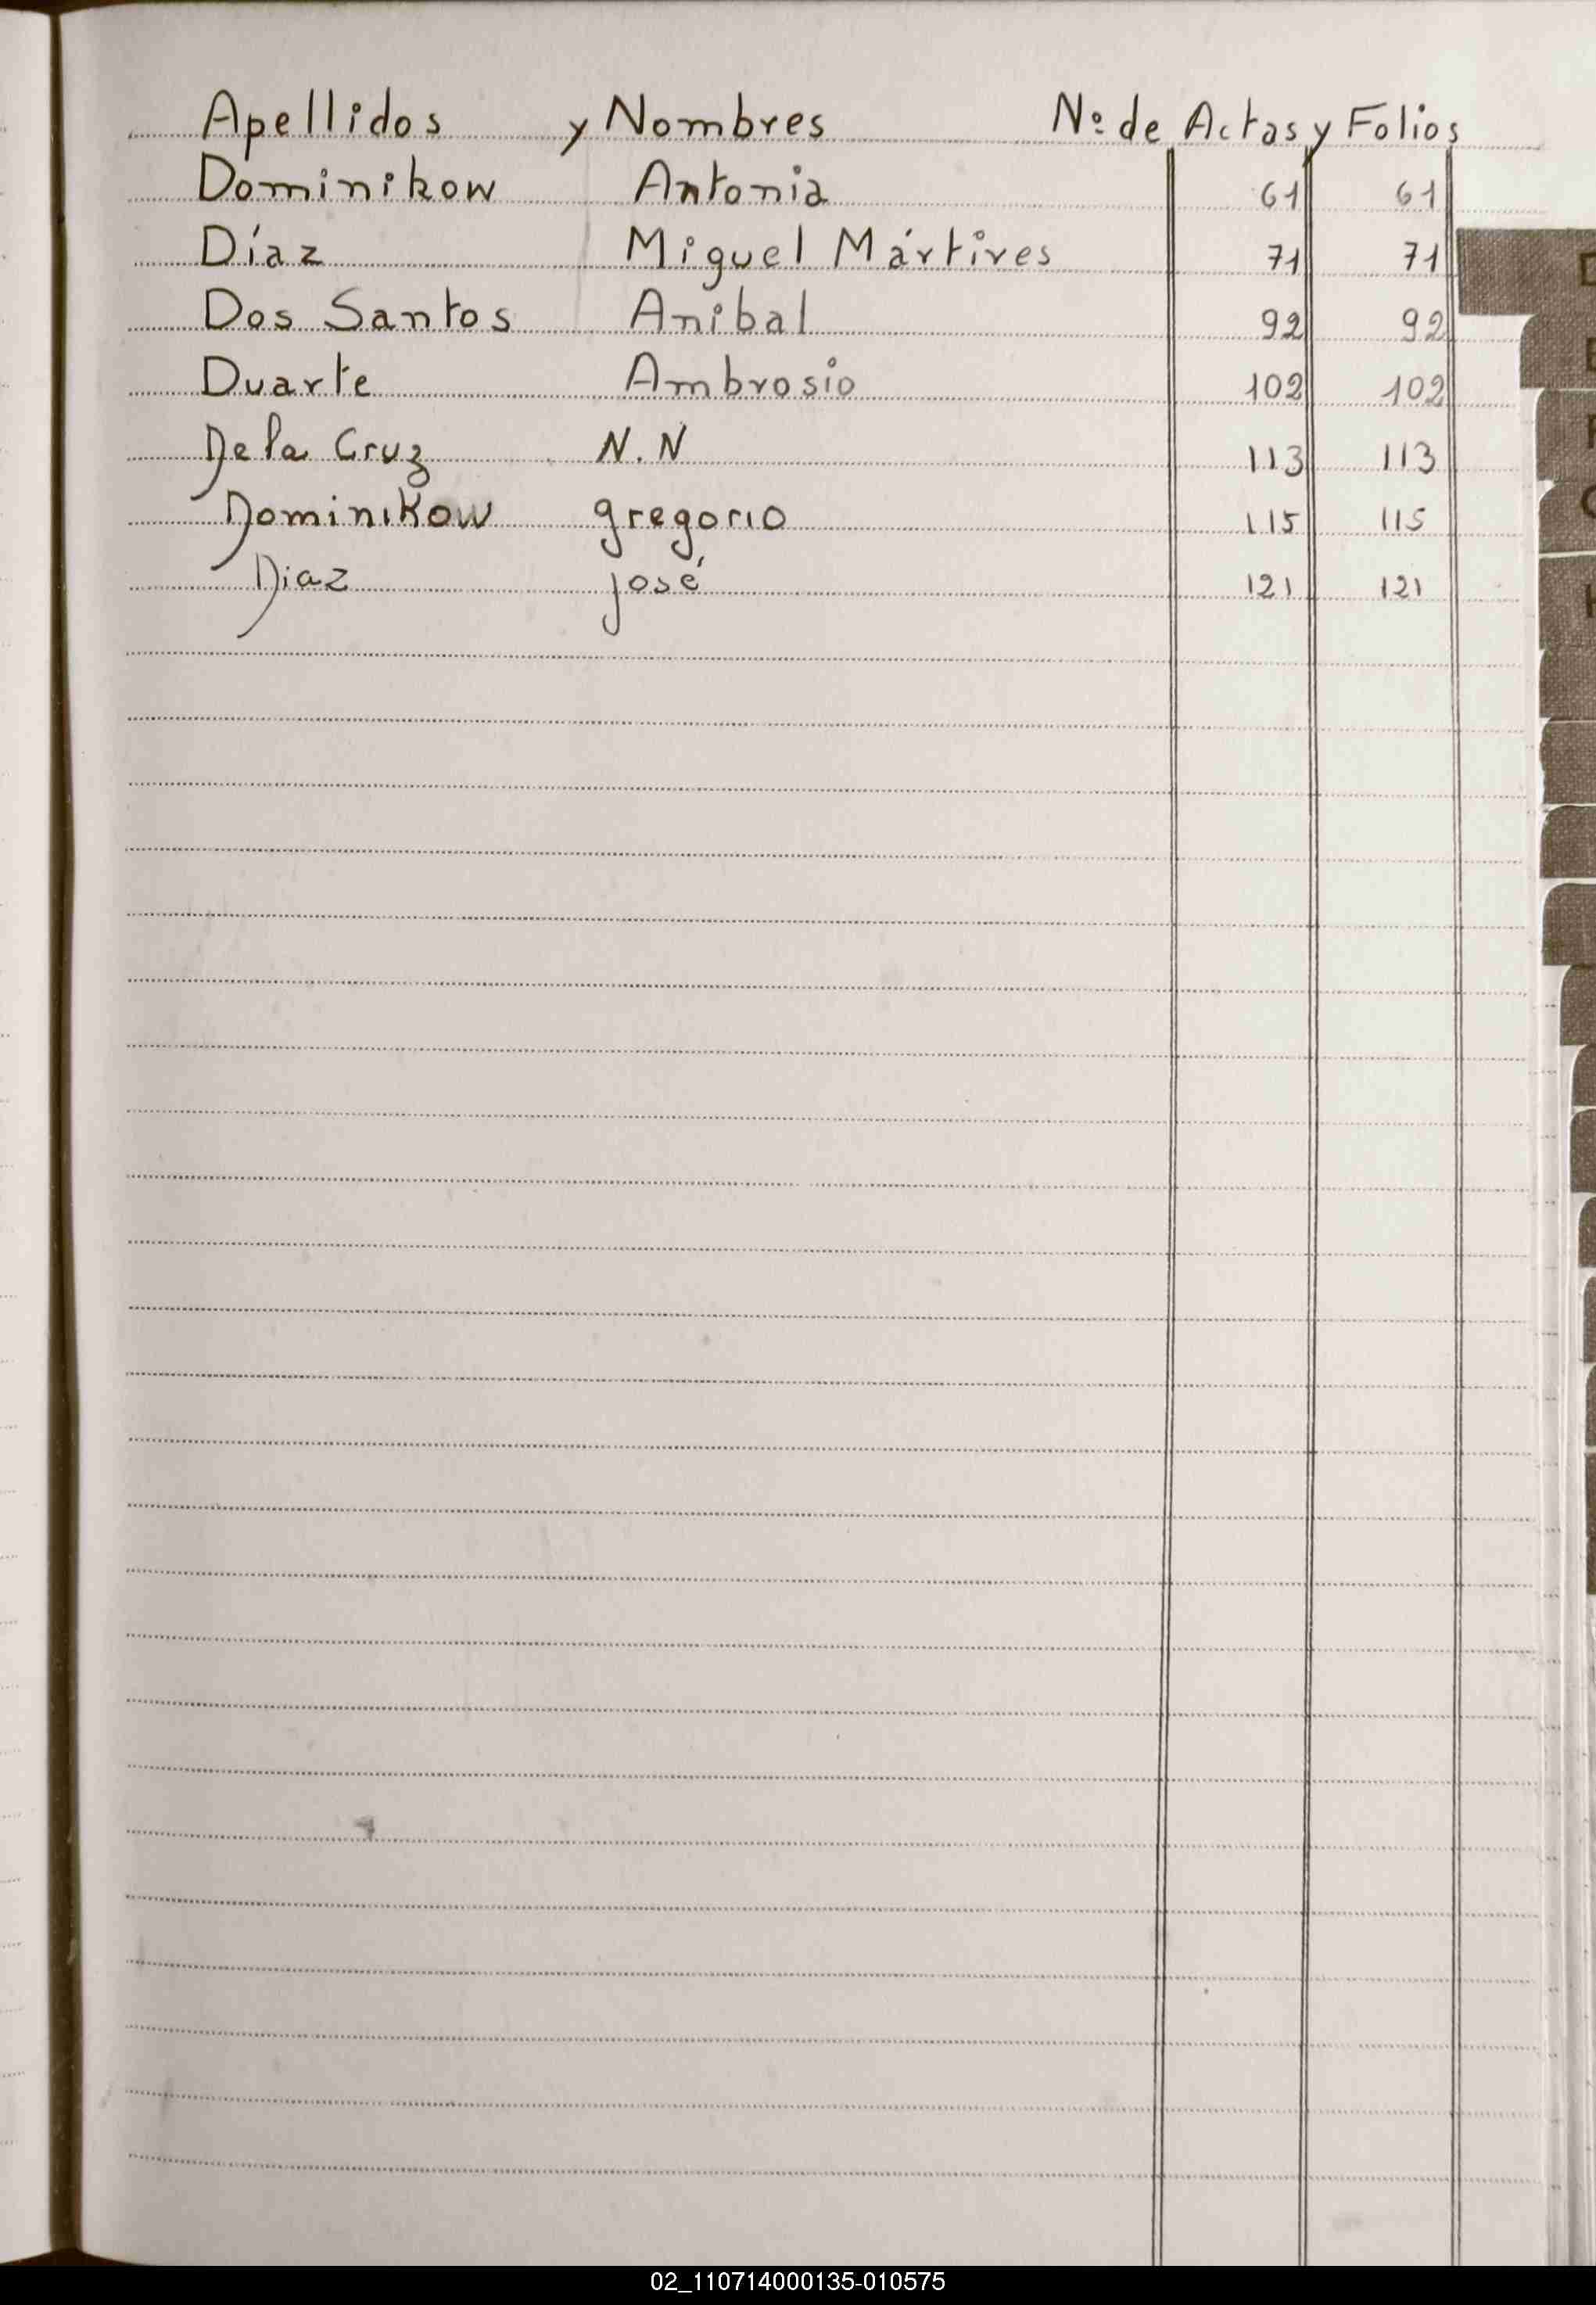 Apellidos y Nombres Nº de Actas y Folios
Dominikow Antonia 61 61
Díaz Miguel Mártires 71 71
Dos Santos Anibal 92 92
Duarte Ambrosio 102 102
De la Cruz N.N 113 113
Dominikow gregorio 115 115
Diaz josé 121 121
D
02_110714000135-010575